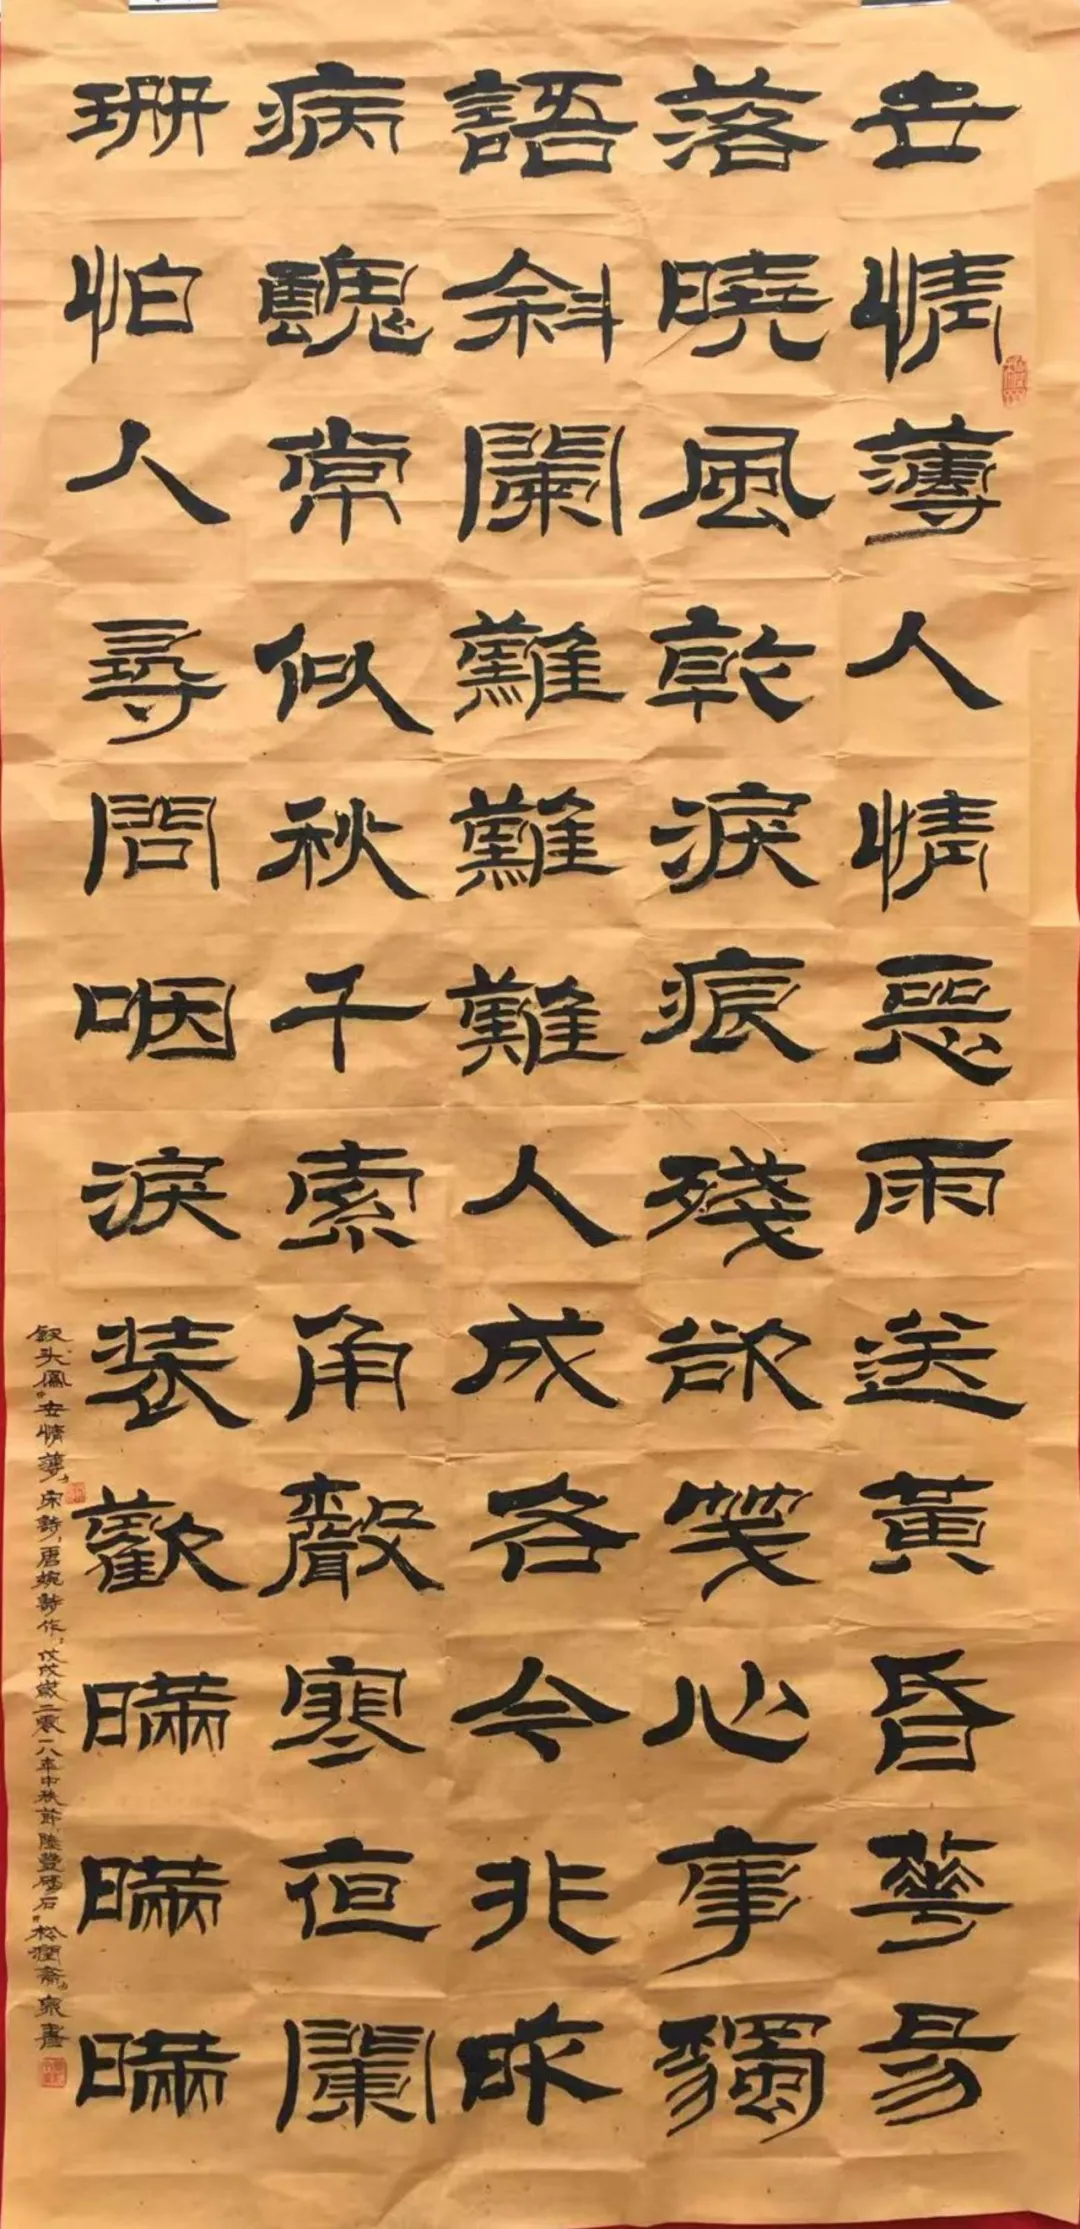 世情薄人情惡雨送黃昏華易
落曉風乾淚痕殘欲箋心事獨
語斜闌難難難人成各今非昨
病魂常似秋千索角聲寒夜闌
珊怕人尋問咽淚裝歡瞞瞞瞞
釵头鳳"世情薄"宋詩,唐婉詩作,戊戌歲二零一八年中秋節,陸豐碣石"松潤齋"泉書